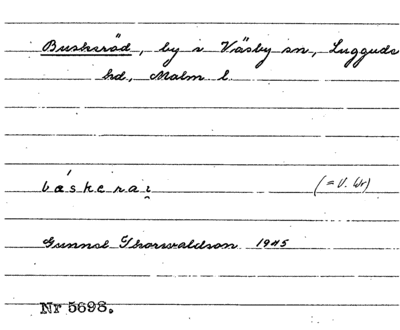 Buskeröd, by i Väsby sn, Luggude
hd, Malm l.
báskerai̯
(= V. Wr)
Gunnel Thorwaldson 1945
Nr 5698.